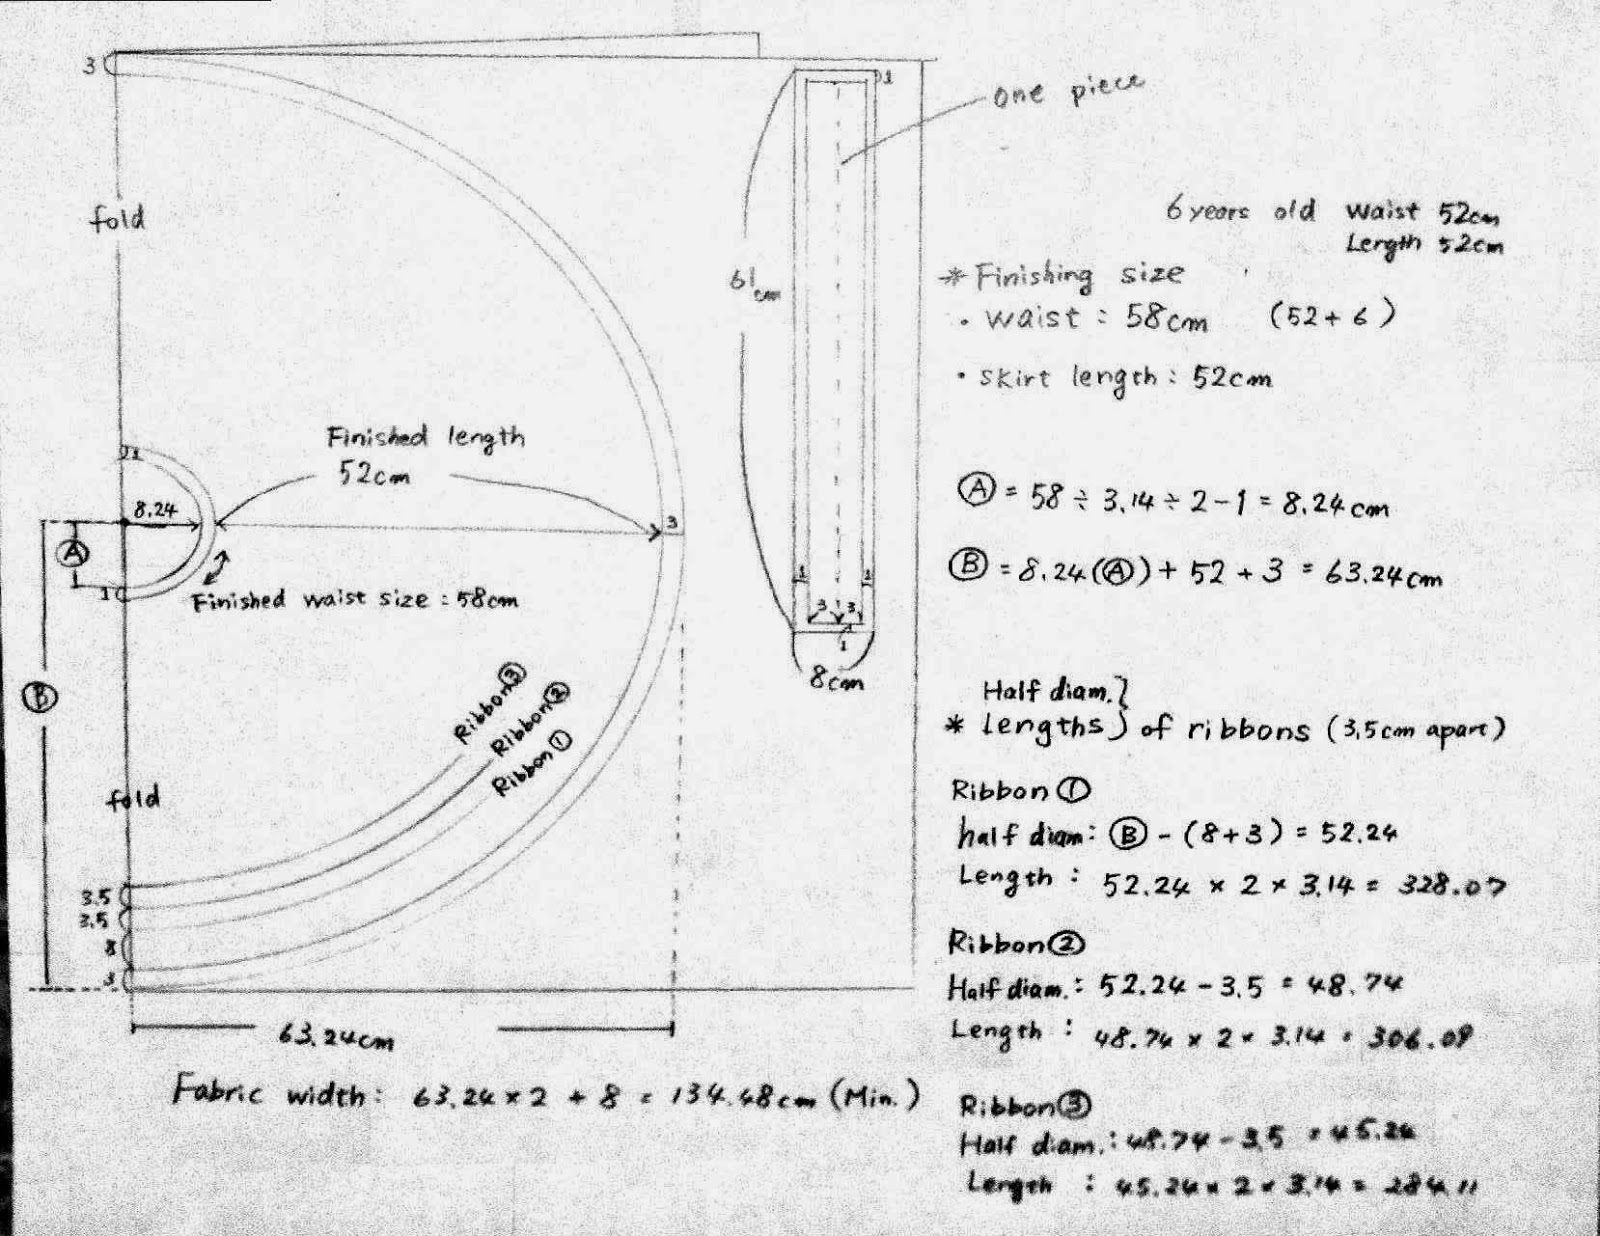 3
1
one piece
fold
6 years old waist 52cm
Length 52cm
* Finishing size
61cm
• waist : 58cm (52+6)
• skirt length : 52cm
Finished length
52cm
1
8.24
3
Ⓐ
Ⓐ = 58 ÷ 3.14 ÷ 2 - 1 = 8.24cm
Ⓑ = 8.24(Ⓐ) + 52 + 3 = 63.24cm
1
Finished waist size : 58cm
1 1
3 3
1
8cm
Ⓑ
Ribbon③
Ribbon②
Ribbon①
Half diam.}
* Lengths) of ribbons (3.5cm apart)
fold
Ribbon①
half diam: Ⓑ - (8+3) = 52.24
Length : 52.24 × 2 × 3.14 = 328.07
3.5
3.5
8
3
Ribbon②
Half diam.: 52.24 - 3.5 = 48.74
Length : 48.74 × 2 × 3.14 = 306.09
63.24cm
Fabric width: 63.24 × 2 + 8 = 134.48cm (Min.)
Ribbon③
Half diam.: 48.74 - 3.5 = 45.24
Length : 45.24 × 2 × 3.14 = 284.11